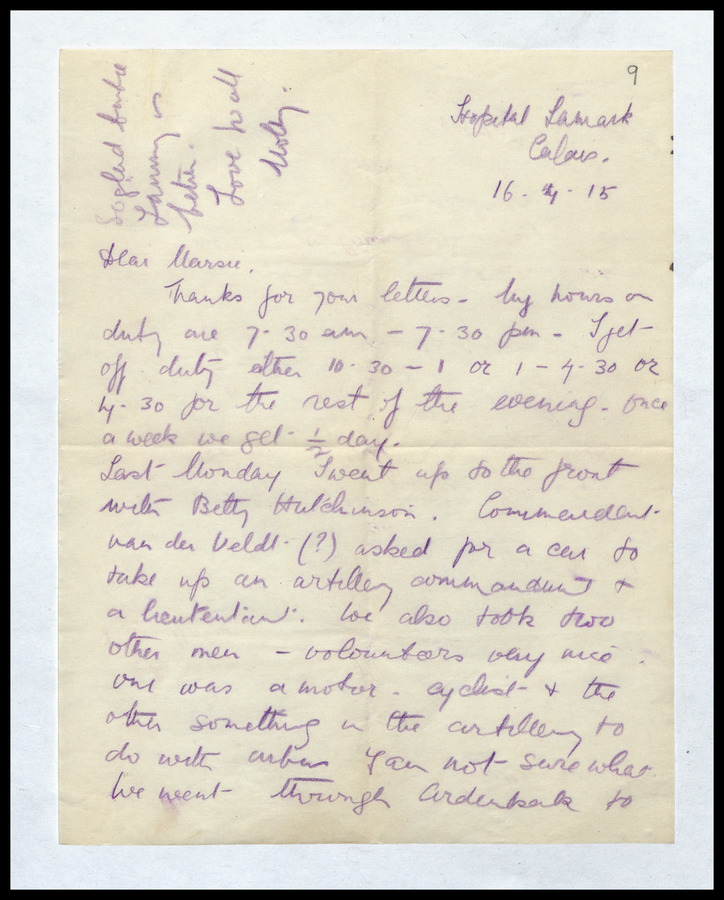 9
Hopital Lamark
Calais.
16 - 4 - 15
So glad
Lanning is
better.
Love to all
Molly.
Dear Marsie,
Thanks for your letters - My hours on
duty are 7-30 am - 7-30 pm - I get
off duty either 10-30 - 1 or 1 - 4-30 or
4-30 for the rest of the evening - once
a week we get ½ day.
Last Monday I went up to the front
with Betty Hutchinson. Commendant
van der Veldt (?) asked for a car to
take up an artillery commandant &
a lieutenant. We also took two
other men - volounteers very nice.
one was a motor-cyclist & the
other something in the artillery to
do with I am not sure what
We went through Ardenkirk to